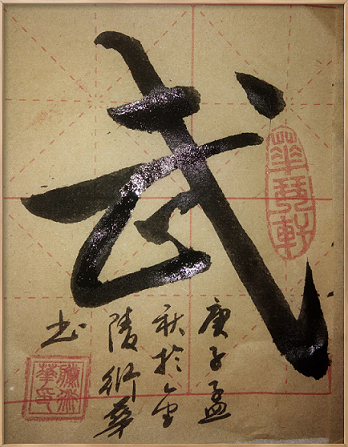 武
庚子孟
秋於金
陵術華
书